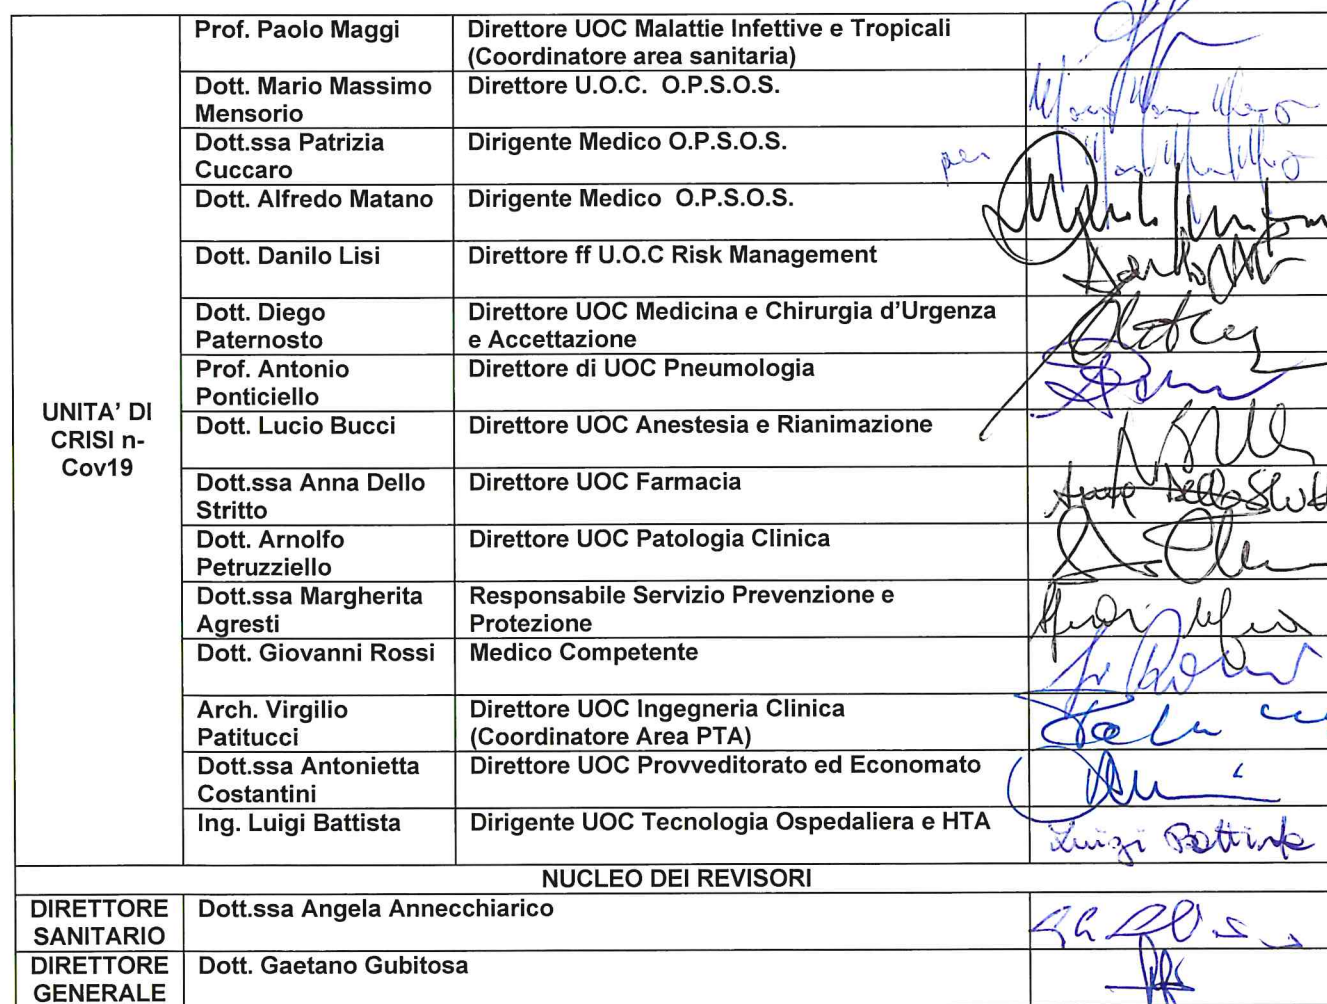 Prof. Paolo Maggi
Direttore UOC Malattie Infettive e Tropicali
(Coordinatore area sanitaria)
Dott. Mario Massimo
Mensorio
Direttore U.O.C. O.P.S.O.S.
Dott.ssa Patrizia
Cuccaro
Dirigente Medico O.P.S.O.S.
per
Dott. Alfredo Matano
Dirigente Medico O.P.S.O.S.
Dott. Danilo Lisi
Direttore ff U.O.C Risk Management
Dott. Diego
Paternosto
Direttore UOC Medicina e Chirurgia d'Urgenza
e Accettazione
Prof. Antonio
Ponticiello
Direttore di UOC Pneumologia
UNITA' DI
CRISI n-
Cov19
Dott. Lucio Bucci
Direttore UOC Anestesia e Rianimazione
Dott.ssa Anna Dello
Stritto
Direttore UOC Farmacia
Dott. Arnolfo
Petruzziello
Direttore UOC Patologia Clinica
Dott.ssa Margherita
Agresti
Responsabile Servizio Prevenzione e
Protezione
Dott. Giovanni Rossi
Medico Competente
Arch. Virgilio
Patitucci
Direttore UOC Ingegneria Clinica
(Coordinatore Area PTA)
Dott.ssa Antonietta
Costantini
Direttore UOC Provveditorato ed Economato
Ing. Luigi Battista
Dirigente UOC Tecnologia Ospedaliera e HTA
Luigi Battista
NUCLEO DEI REVISORI
DIRETTORE
SANITARIO
Dott.ssa Angela Annecchiarico
DIRETTORE
GENERALE
Dott. Gaetano Gubitosa